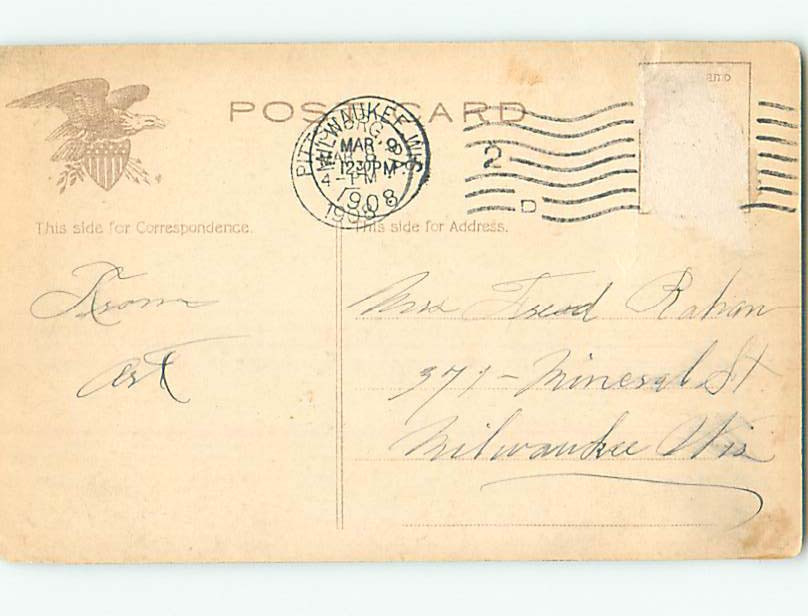 POST CARD
MILWAUKEE, WIS.
MAR 9
1230PM
1908
PITTSBURG
4-PM
1908
2
D
This side for Correspondence.
This side for Address.
From
Art
Mrs Fred Rahan
371-Mineral St.
Milwaukee Wis